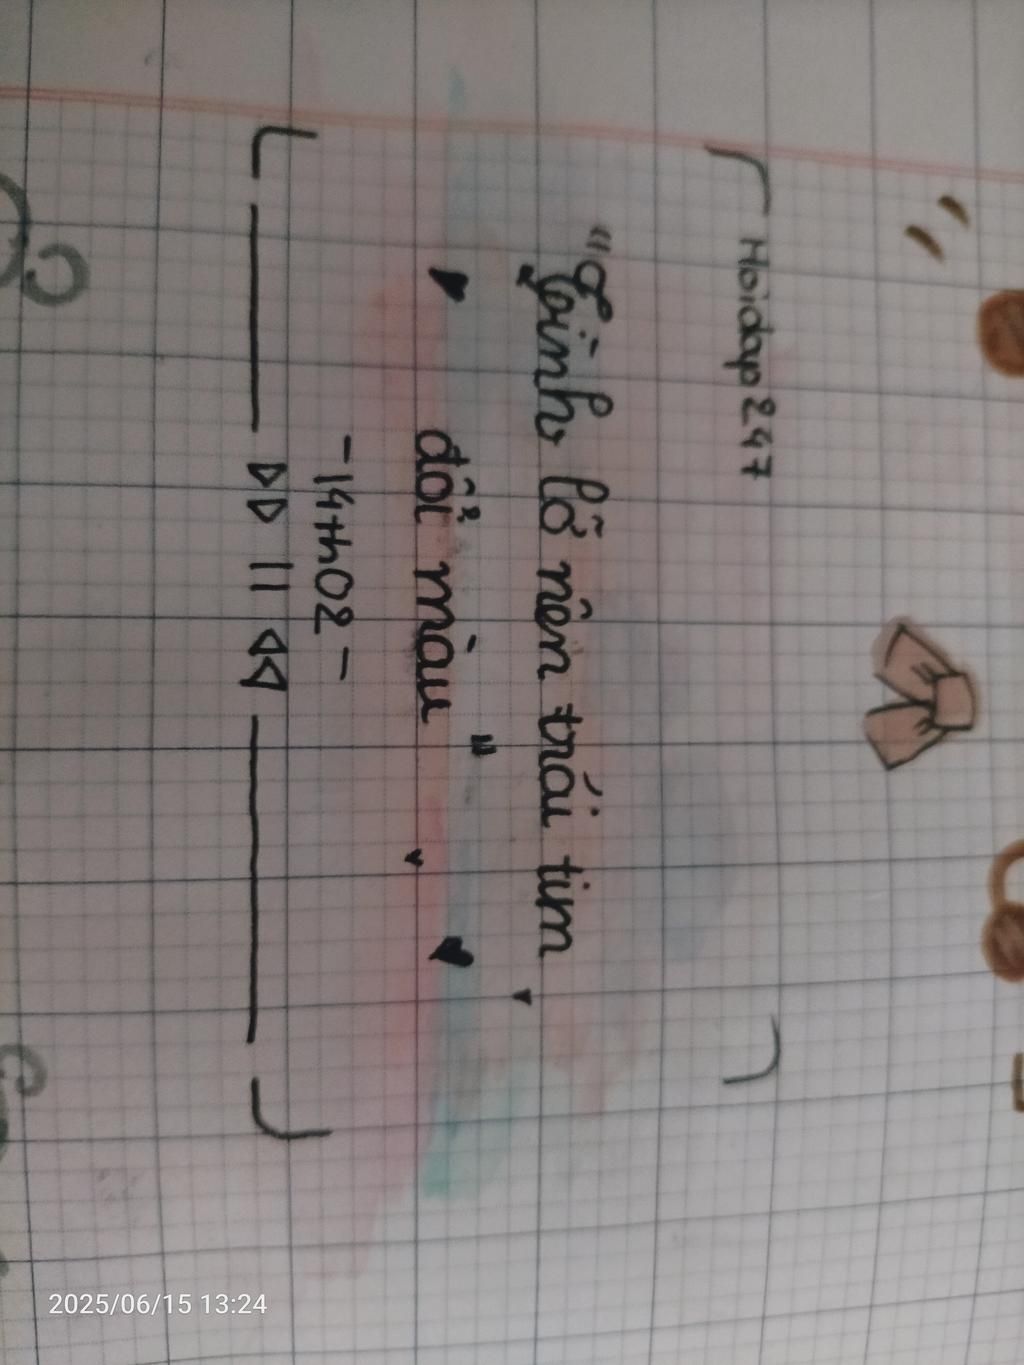 Hoidap247
"Tình lỡ nên trái tim
đổi màu"
-14th02-
2025/06/15 13:24